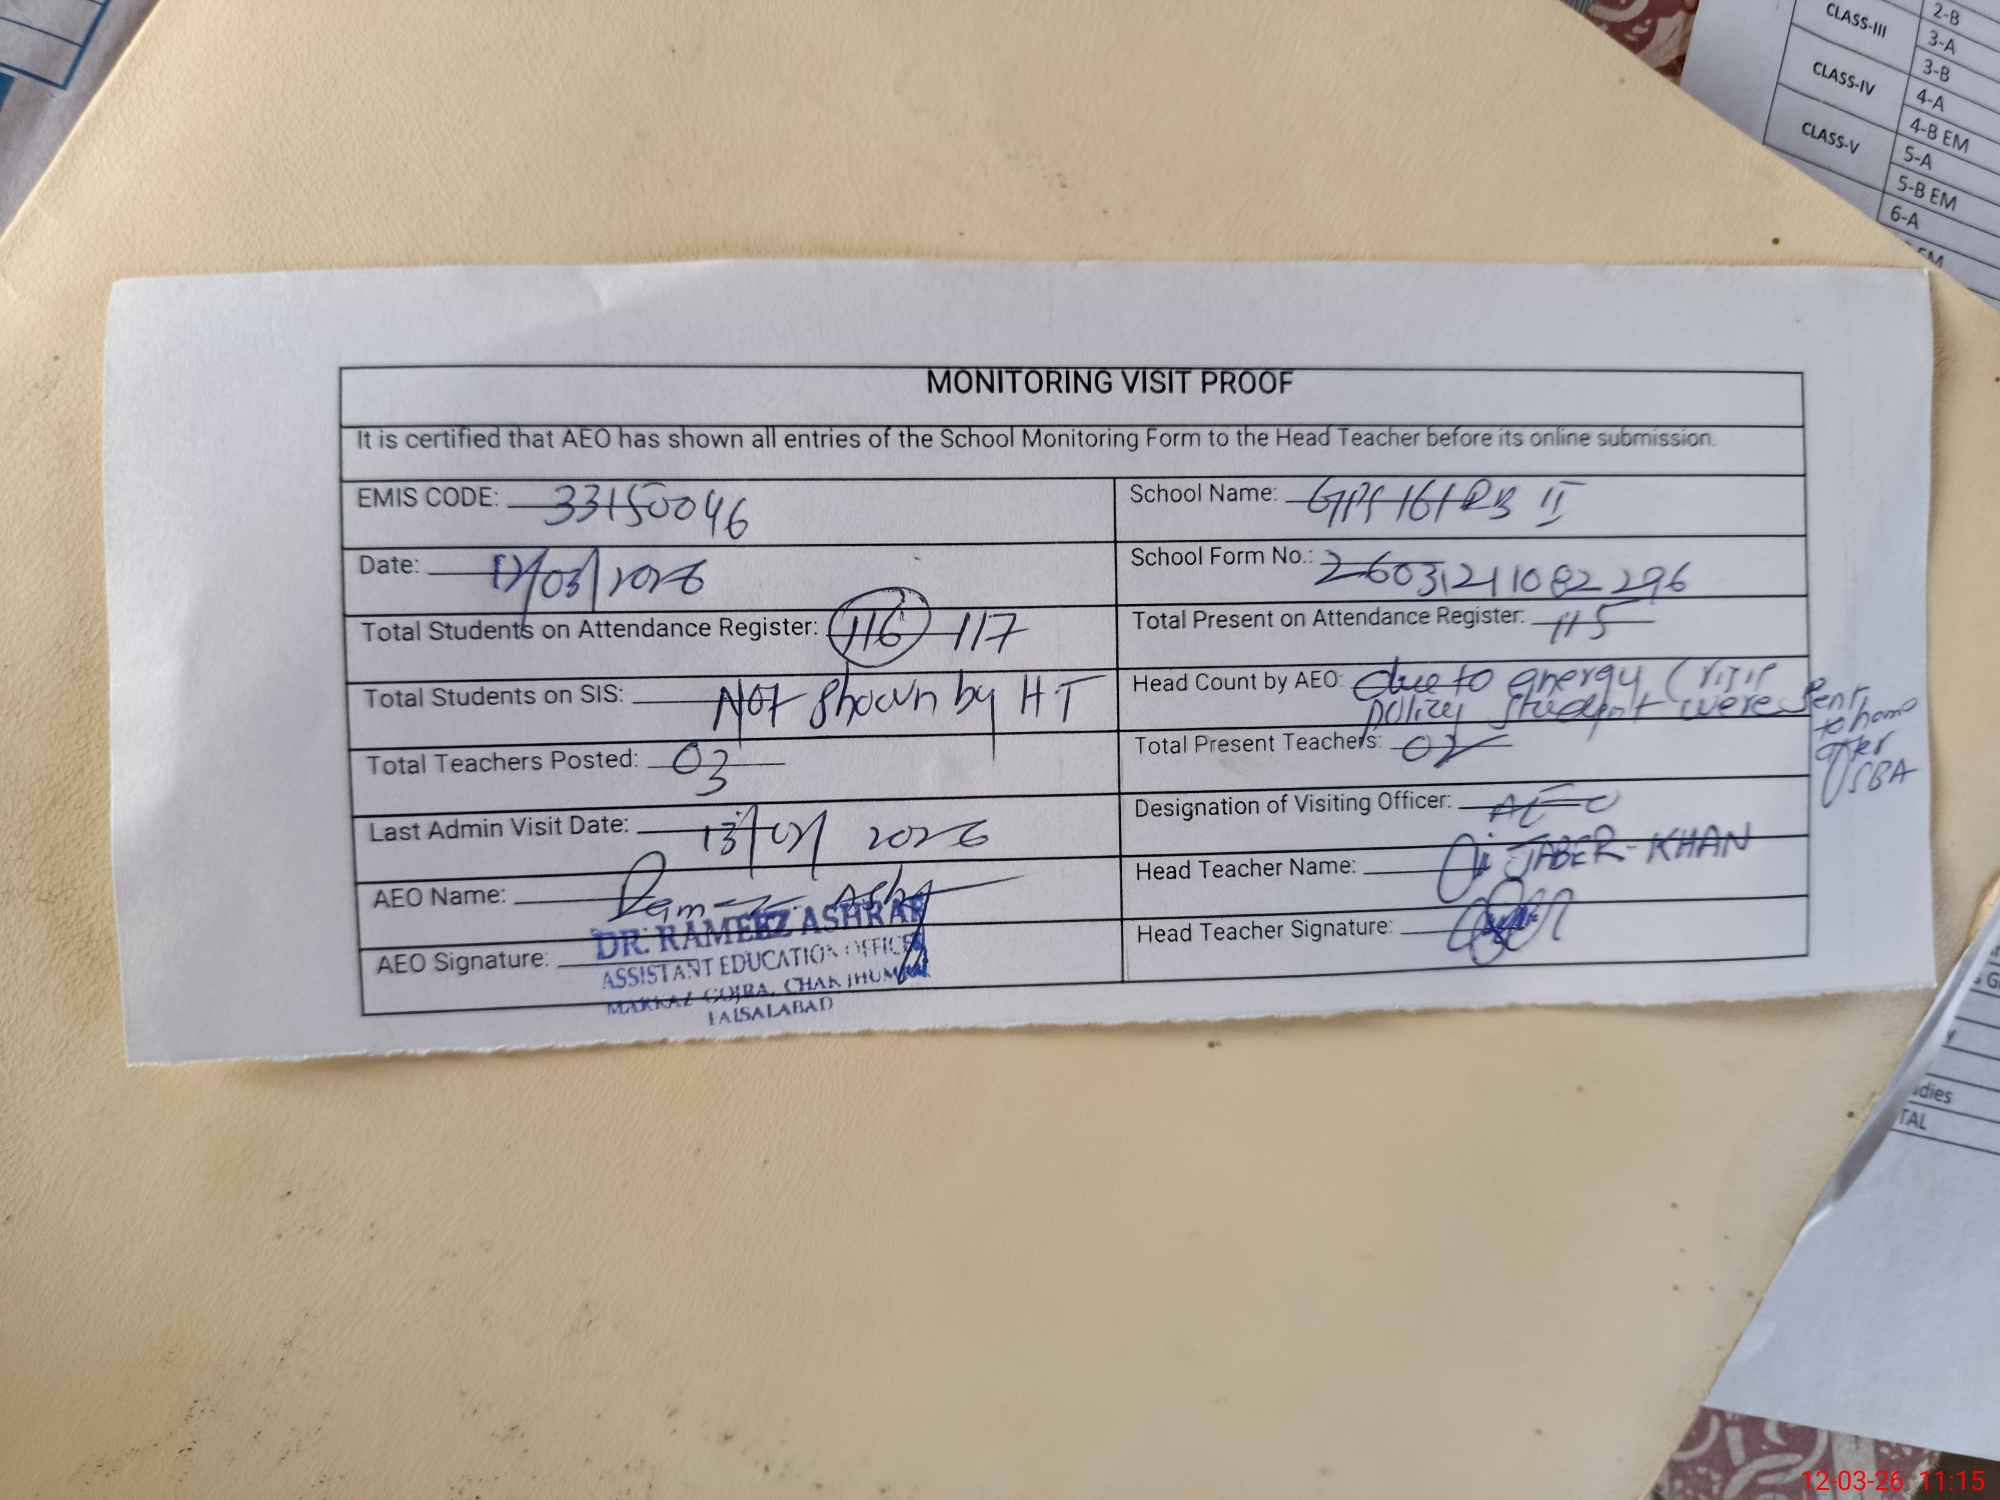 CLASS-III
2-B
3-A
CLASS-IV
3-B
4-A
CLASS-V
4-B EM
5-A
5-B EM
6-A
EM
MONITORING VISIT PROOF
It is certified that AEO has shown all entries of the School Monitoring Form to the Head Teacher before its online submission.
EMIS CODE: 33150046
School Name: GPS 161 RB II
Date: 12/03/2026
School Form No.: 26031211082296
Total Students on Attendance Register: 116 117
Total Present on Attendance Register: 115
Total Students on SIS: Not shown by HT
Head Count by AEO: due to energy crisis
policy student were sent
to home
after
SBA
Total Teachers Posted: 03
Total Present Teachers: 02
Last Admin Visit Date: 13/01/2026
Designation of Visiting Officer: AEO
AEO Name: Rameez Ashraf
Head Teacher Name: JABER-KHAN
AEO Signature:
Head Teacher Signature:
DR. RAMEEZ ASHRAF
ASSISTANT EDUCATION OFFICER
MARKAZ GOJRA, CHAK JHUMRA
FAISALABAD
dies
TAL
12-03-26 11:15